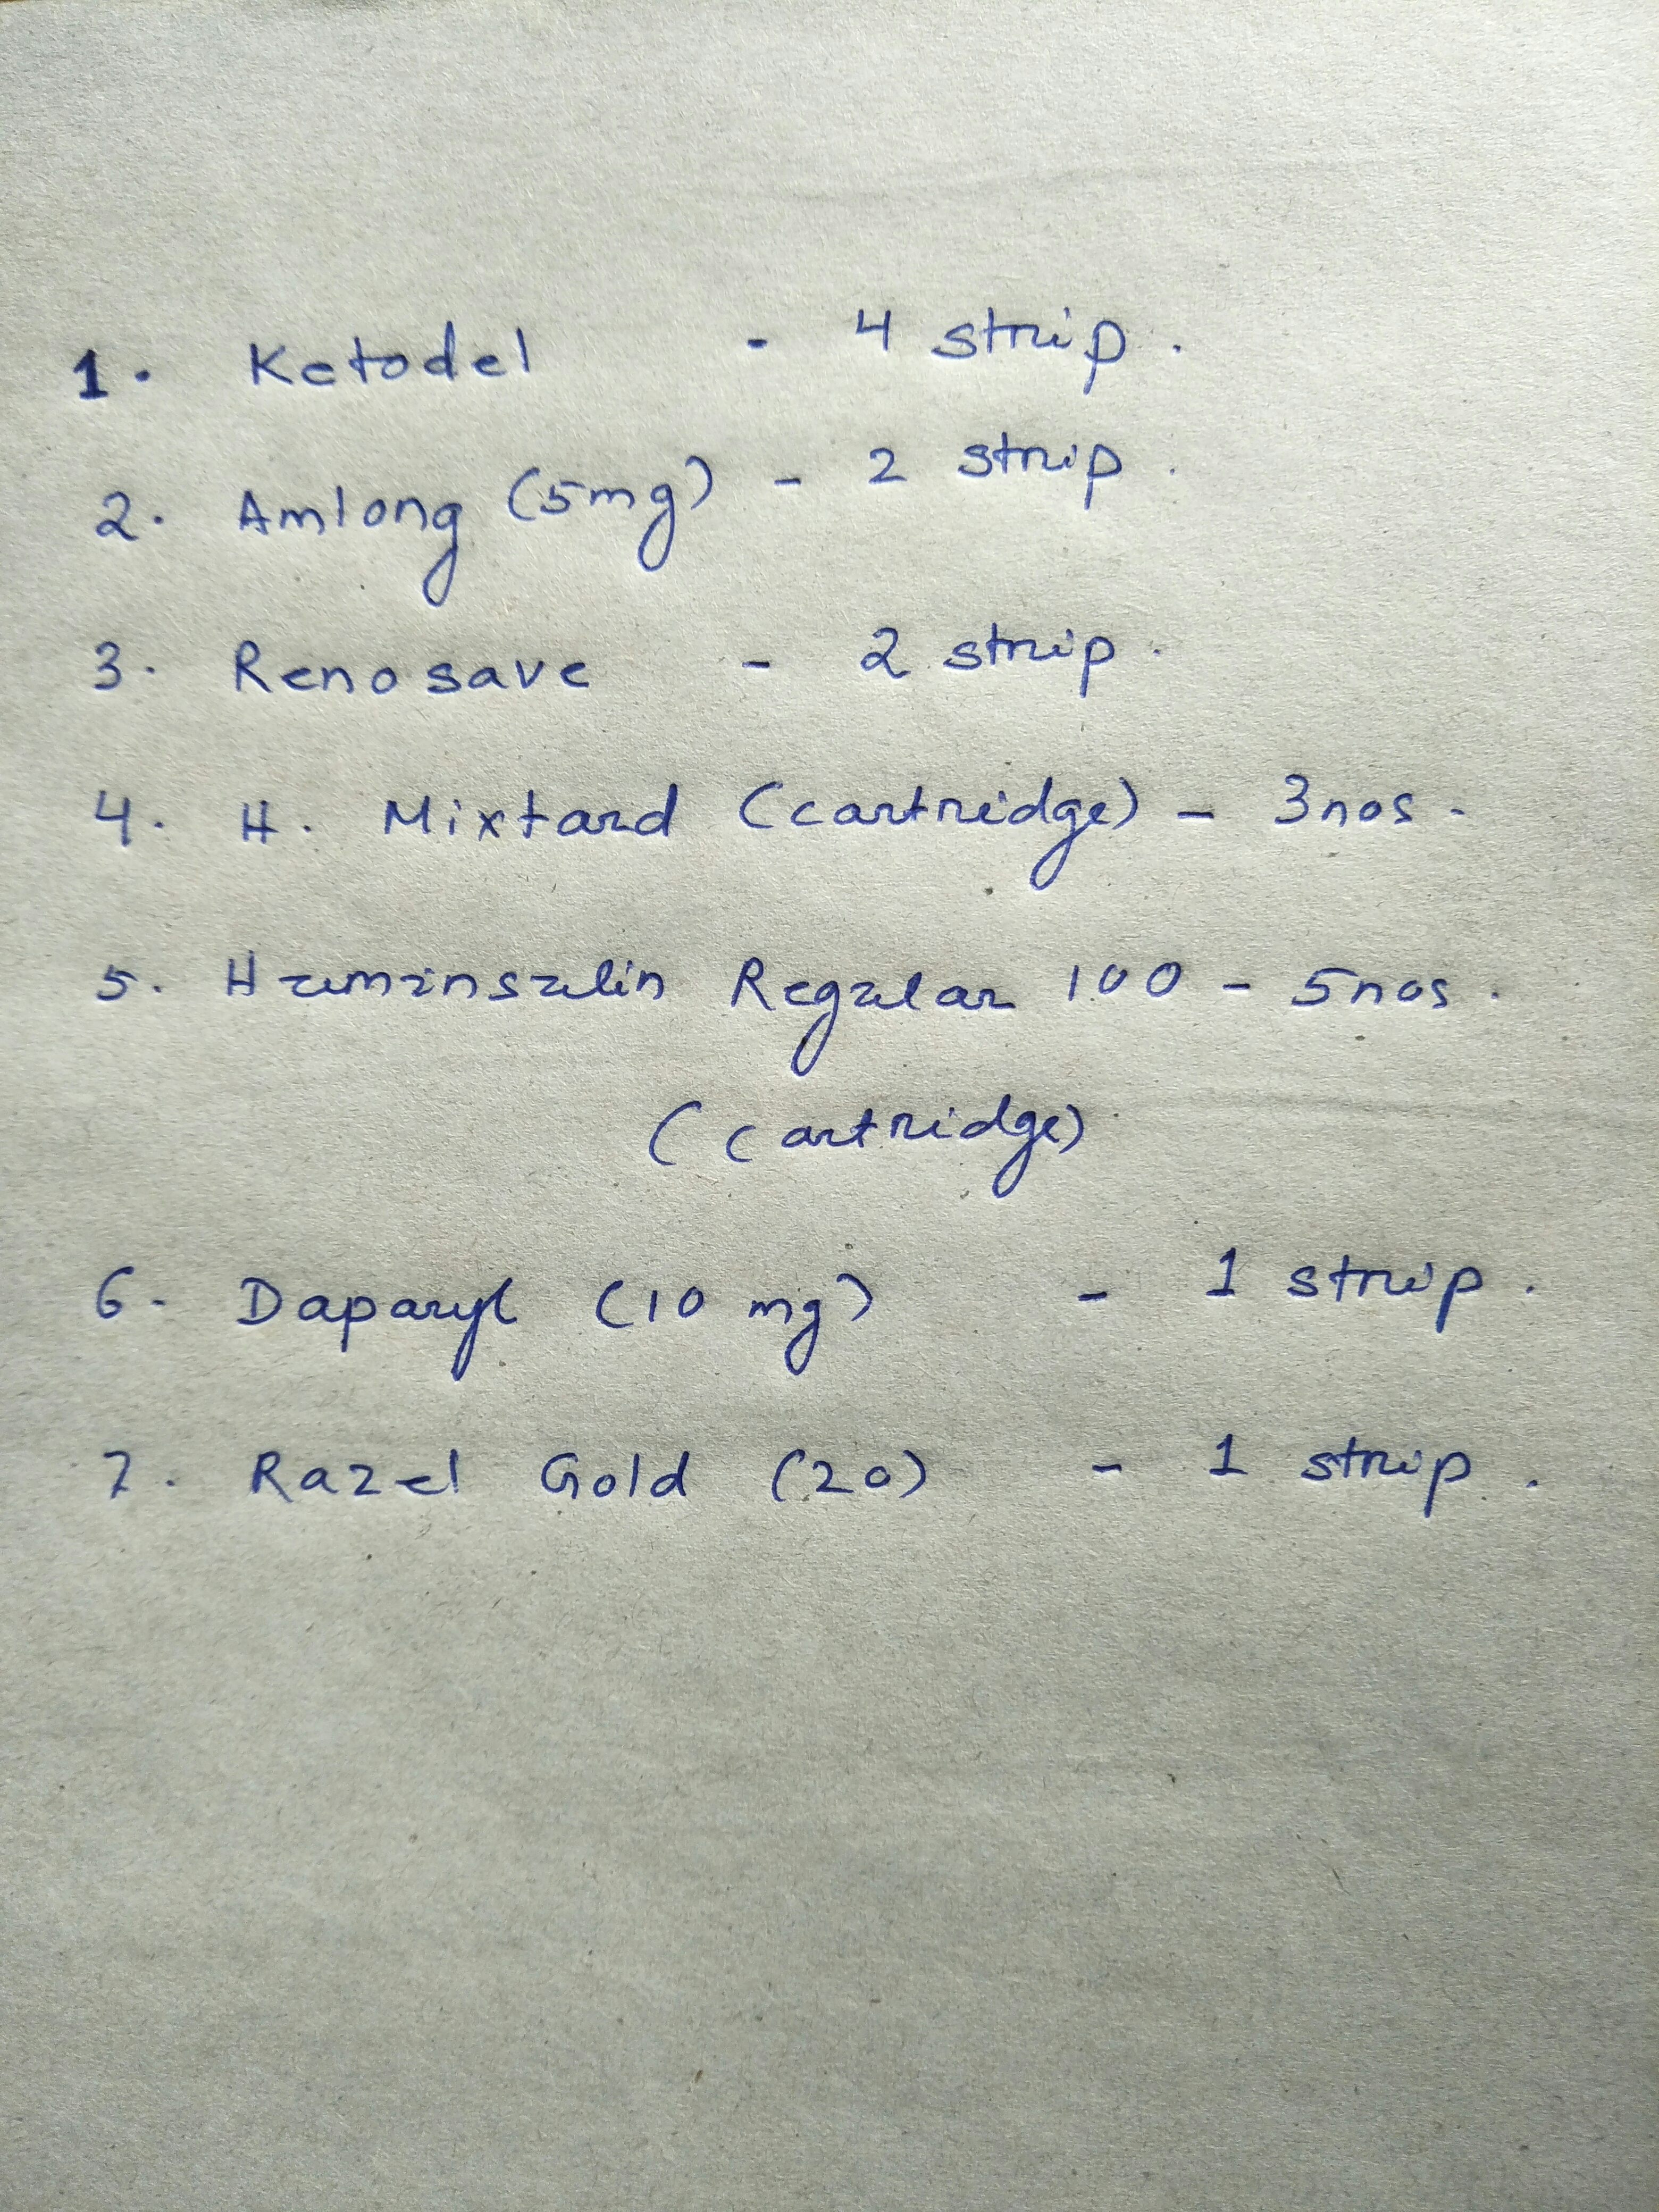 1. Ketodel - 4 strip.
2. Amlong (5mg) - 2 strip.
3. Renosave - 2 strip.
4. H. Mixtard (cartridge) - 3nos.
5. Huminsulin Regular 100 - 5nos.
(cartridge)
6. Daparyl (10 mg) - 1 strip.
7. Razel Gold (20) - 1 strip.